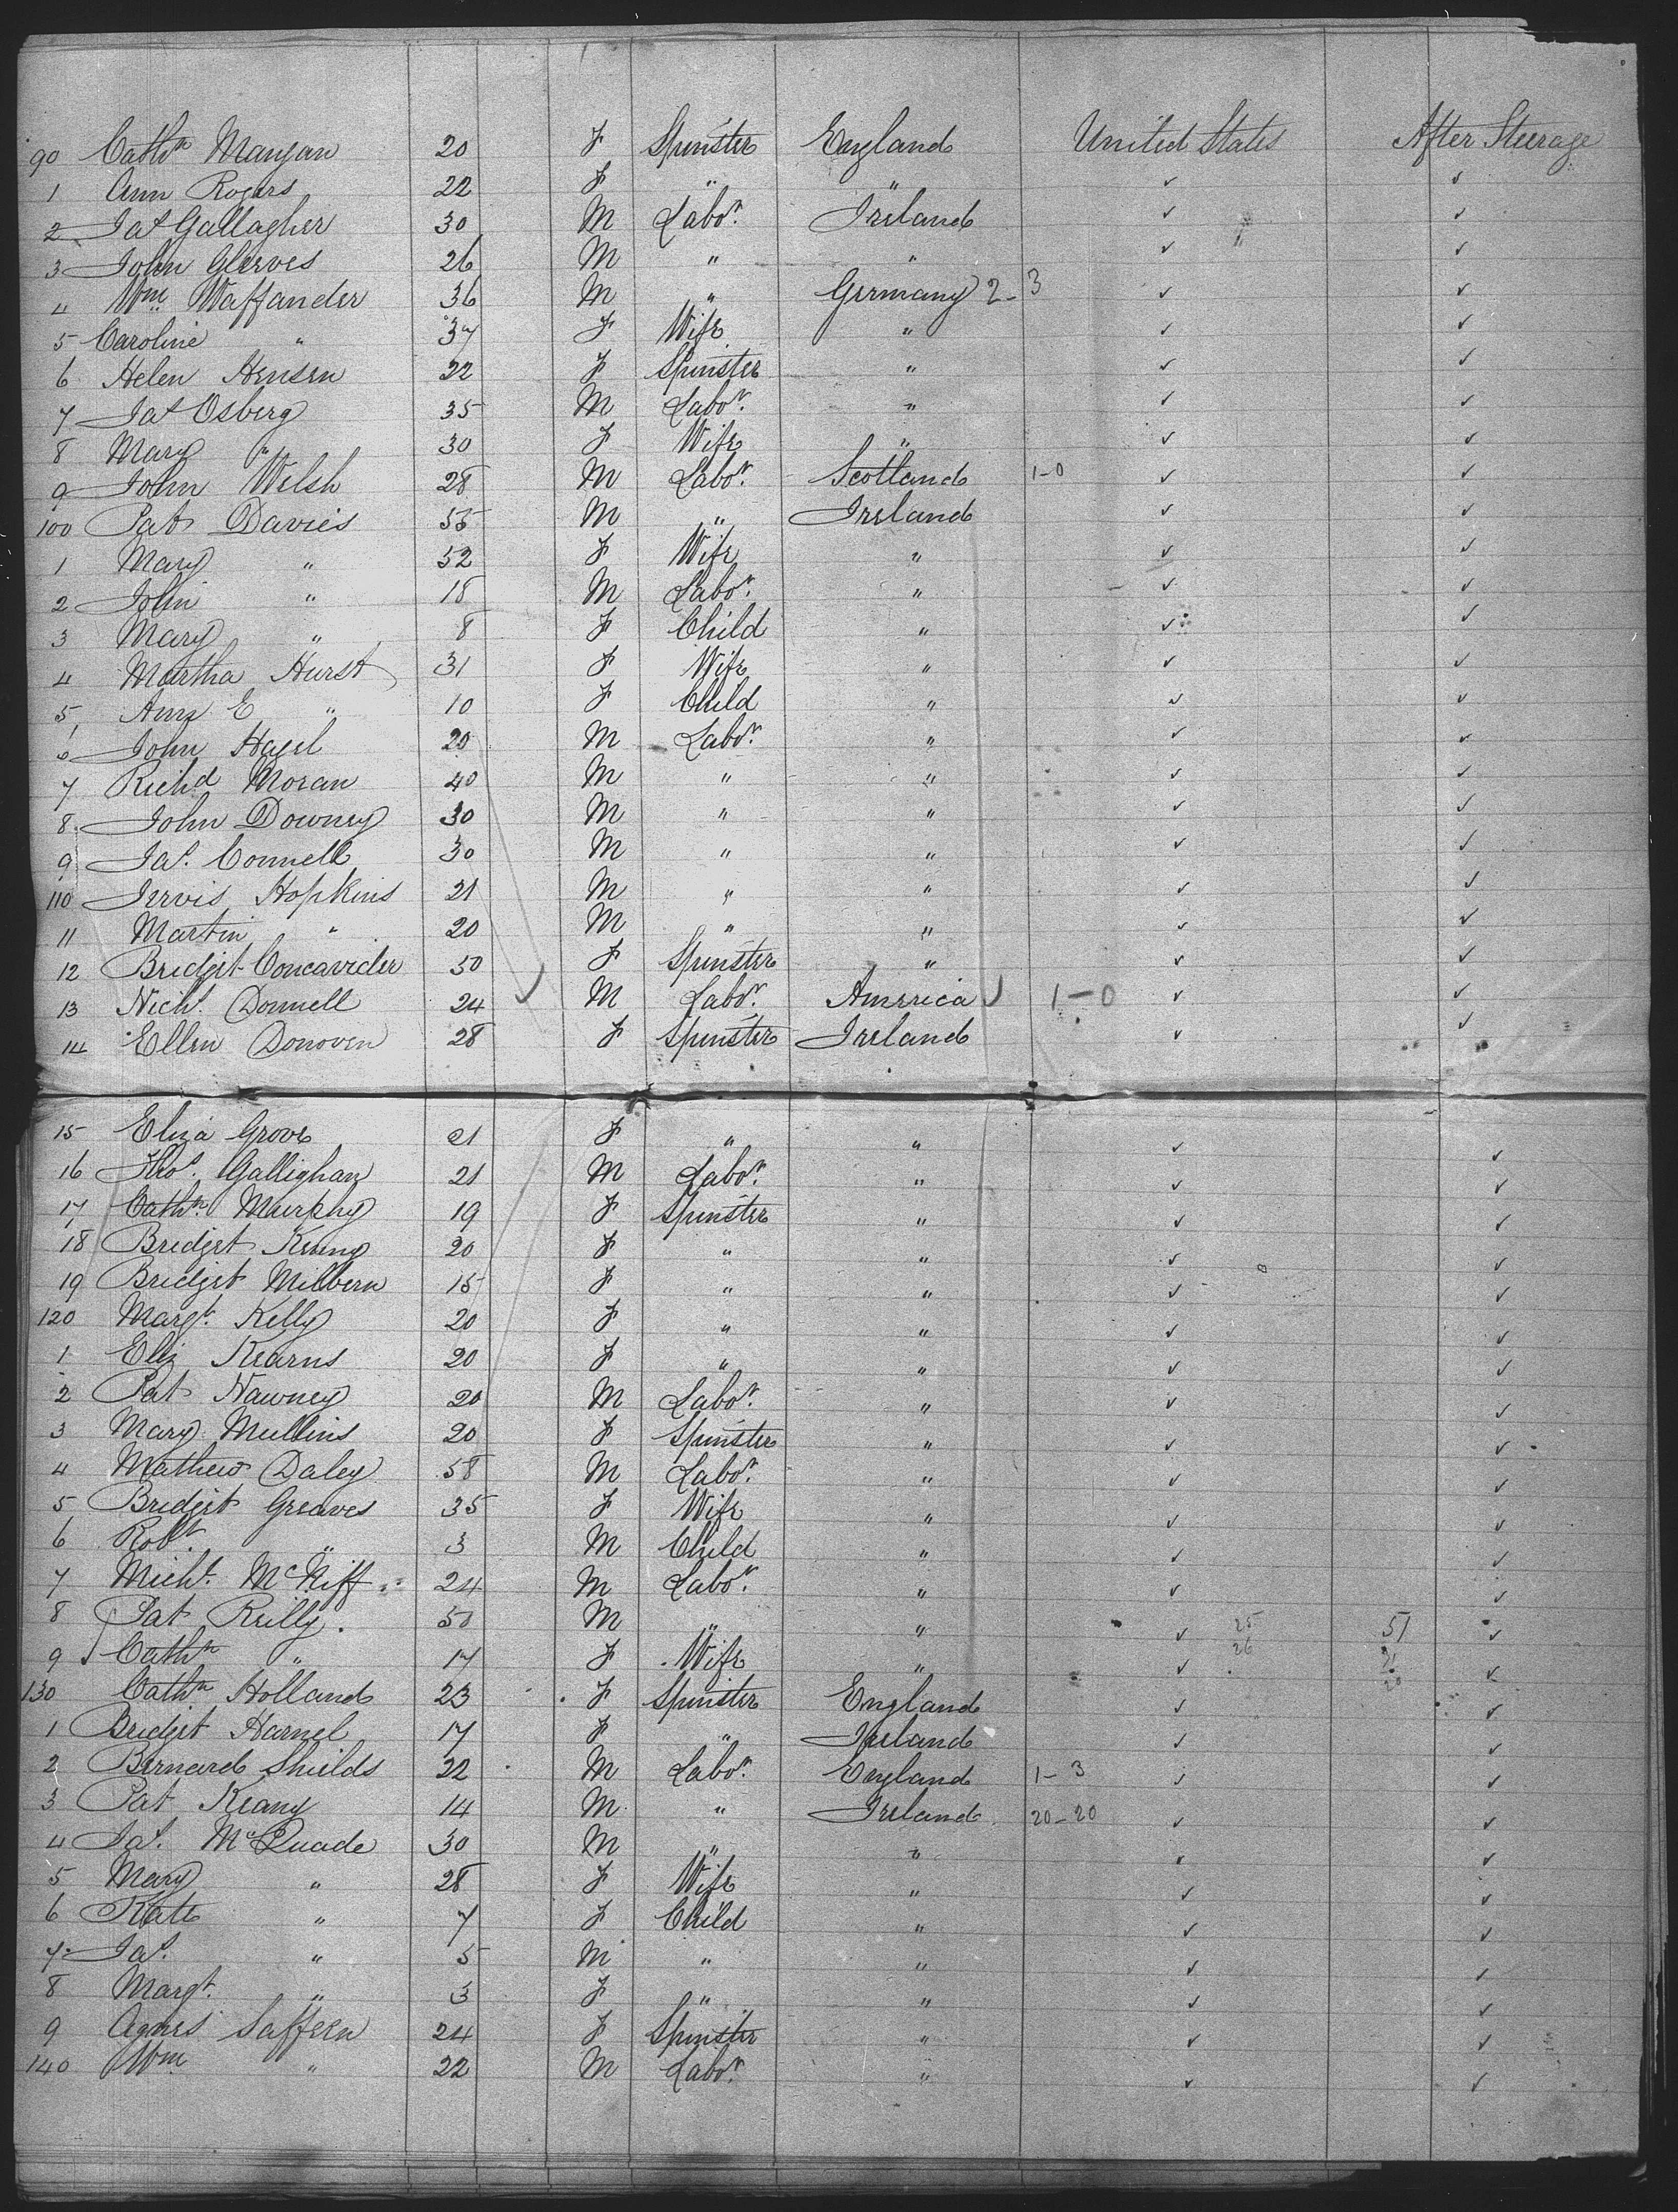 90 Cathn Mangan 20 F Spinster England United States After Steerage
1 Ann Rogers 22 F " " ✓ ✓
2 Jas Gallagher 30 M Labor. Ireland ✓ ✓
3 John Gleeves 26 M " " ✓ ✓
4 Wm Waffander 36 M " Germany 2-3 ✓ ✓
5 Caroline " 37 F Wife " ✓ ✓
6 Helen Hensen 22 F Spinster " ✓ ✓
7 Jas Osberg 35 M Labor. " ✓ ✓
8 Mary " 30 F Wife " ✓ ✓
9 John Welsh 28 M Labor. Scotland 1-0 ✓ ✓
100 Pat Davies 55 M " Ireland ✓ ✓
1 Mary " 52 F Wife " ✓ ✓
2 John " 18 M Labor. " ✓ ✓
3 Mary " 8 F Child " ✓ ✓
4 Martha Hurst 31 F Wife " ✓ ✓
5 Ann E " 10 F Child " ✓ ✓
6 John Hagel 20 M Labor. " ✓ ✓
7 Richd Moran 40 M " " ✓ ✓
8 John Downey 30 M " " ✓ ✓
9 Jas. Connell 30 M " " ✓ ✓
110 Jervis Hopkins 21 M " " ✓ ✓
11 Martin " 20 M " " ✓ ✓
12 Bridget Concavider 50 F Spinster " ✓ ✓
13 Nichs. Donnell 24 M Labor. America 1-0 ✓ ✓
14 Ellen Donoven 28 F Spinster Ireland ✓ ✓
15 Eliza Grove 21 F " " ✓ ✓
16 Thos. Gallighan 21 M Labor. " ✓ ✓
17 Cathn. Murphy 19 F Spinster " ✓ ✓
18 Bridget Keung 20 F " " ✓ ✓
19 Bridget Milbern 15 F " " ✓ ✓
120 Margt. Kelly 20 F " " ✓ ✓
1 Eliz Kearns 20 F " " ✓ ✓
2 Pat Nawney 20 M Labor. " ✓ ✓
3 Mary Mullins 20 F Spinster " ✓ ✓
4 Mathew Daley 58 M Labor. " ✓ ✓
5 Bridget Greaves 35 F Wife " ✓ ✓
6 Robt. " 3 M Child " ✓ ✓
7 Michl. McNiff 24 M Labor. " ✓ ✓
8 Pat Reilly. 50 M " " ✓ 25 51 ✓
9 Cathn " 17 F Wife " ✓ 26 ✓
130 Cathn Holland 23 F Spinster England ✓ ✓
1 Bridget Harnel 17 F " Ireland ✓ ✓
2 Bernard Shields 22 M Labor. England 1-3 ✓ ✓
3 Pat Keany 14 M " Ireland 20-20 ✓ ✓
4 Jas. McQuade 30 M " " ✓ ✓
5 Mary " 28 F Wife " ✓ ✓
6 Kate " 7 F Child " ✓ ✓
7 Jas. " 5 M " " ✓ ✓
8 Margt. " 3 F " " ✓ ✓
9 Agnes Saffern 24 F Spinster " ✓ ✓
140 Wm " 22 M Labor. " ✓ ✓